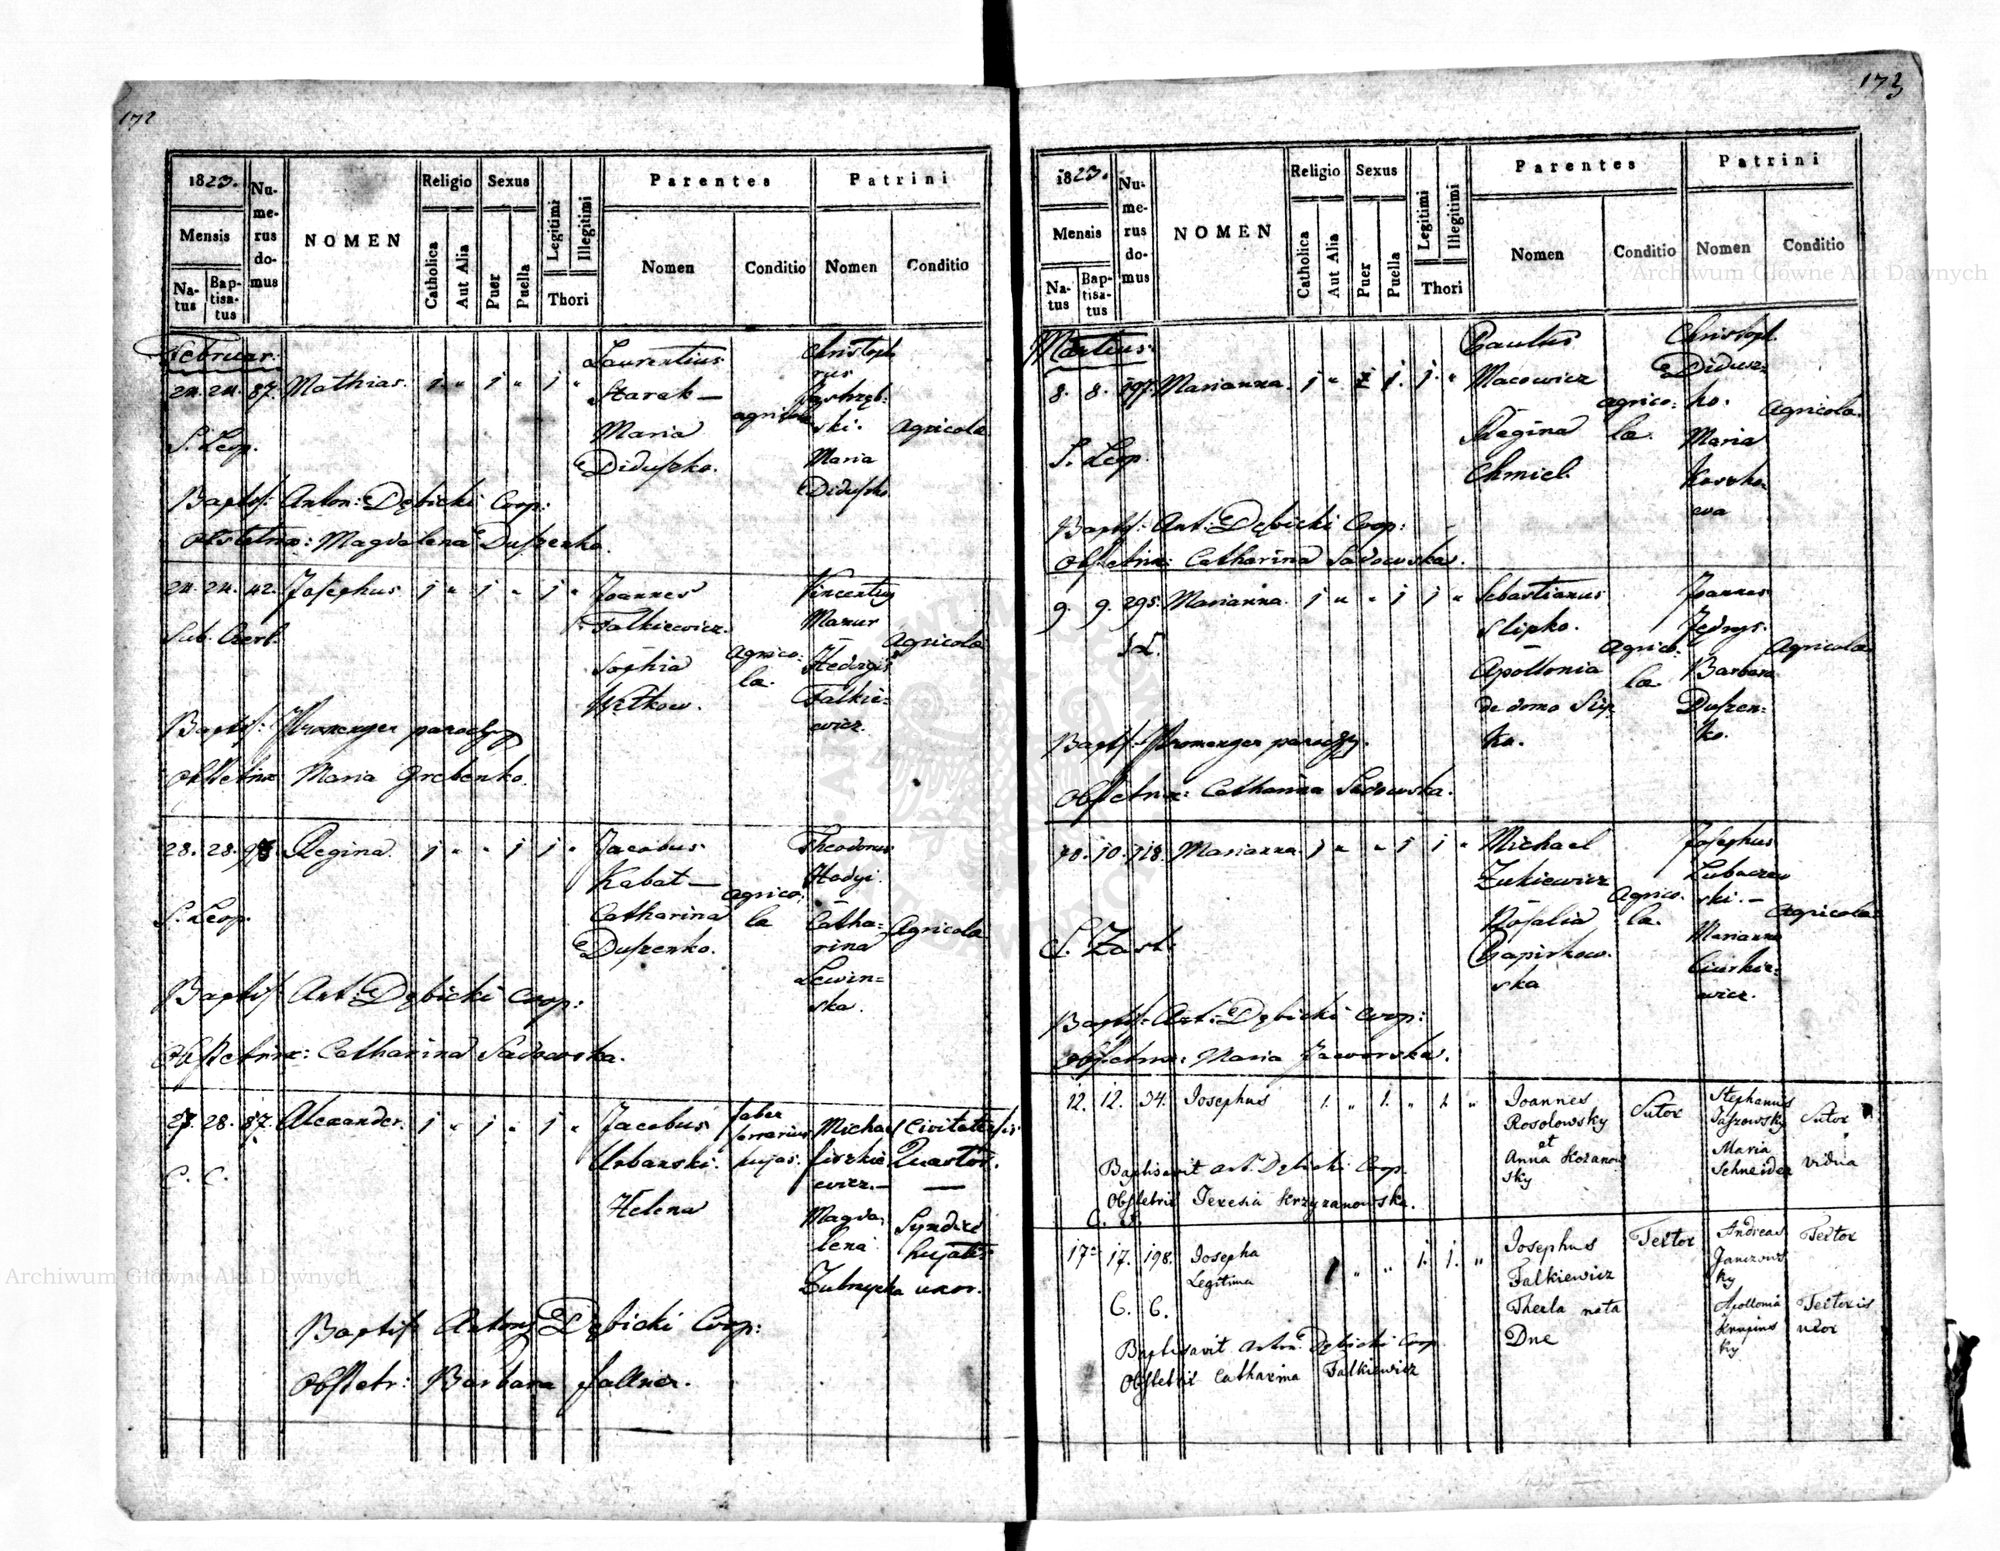 172
1823.
Mensis
Na-
tus
Bap-
tisa-
tus
Nu-
me-
rus
do-
mus
NOMEN
Religio
Catholica
Aut Alia
Sexus
Puer
Puella
Legitimi
Illegitimi
Thori
Parentes
Nomen
Conditio
Patrini
Nomen
Conditio
Februar:
24. 24. 87. Mathias. 1 " 1 " 1 "
S. Leop.
Laurentius
Starak —
Maria
Diduszko.
agricola
Christoph
rus
Jastrzęb:
ski.
Maria
Diduszko
Agricola
Baptis: Anton: Dębicki Coop:
Obstetrix: Magdalena Duszenko.
24. 24. 42. Josephus 1 " 1 " 1 "
Joannes
Falkiewicz.
Sophia
Witkow.
Agrico:
la.
Vincentius
Mazur
Hedvigis
Falkie-
wicz.
Agricola
Baptis: parochus
Obstetrix Maria Grebenko.
28. 28. Regina. 1 " " 1 1 "
S. Leop.
Jacobus
Kabat —
Catharina
Duszenko.
Agrico:
la
Theodorus
Hadyi.
Catha-
rina
Lewin-
ska.
Agricola
Baptis Ant: Dębicki Coop:
Obstetrix: Catharina Sadowska.
27. 28. 87. Alexander. 1 " 1 " 1 "
C. C.
Jacobus
Urbanski.
Helena
faber
ferrarius
hujas.
Michael
ewicz. —
Magda
lena
Civitatensis
Quaestor.
—
Syndici
hujatis
uxor.
Baptis Antony Dębicki Coop:
Obstetr: Barbara Fallner.
173
1823.
Mensis
Na-
tus
Bap-
tisa-
tus
Nu-
me-
rus
do-
mus
NOMEN
Religio
Catholica
Aut Alia
Sexus
Puer
Puella
Legitimi
Illegitimi
Thori
Parentes
Nomen
Conditio
Patrini
Nomen
Conditio
Martius.
8. 8. 197. Marianna. 1 " 1. 1. "
S. Leop.
Paulus
Macowicz
Regina
Chmiel.
Agrico:
la.
Christoph.
Didusz-
ko.
Maria
Koszko
wa
Agricola.
Baptis: Ant: Dębicki Coop:
Obstetrix: Catharina Sadowska.
9. 9. 295. Marianna. 1 " " 1 1 "
S. L.
Sebastianus
Slipko.
Apollonia
de domo Slip
ko.
Agrico:
la.
Joannes
Jedrys.
Barbara
Duszen-
ko.
Agricola
Baptis: parochus.
Obstetrix: Catharina Sadowska.
10. 10. 118. Marianna. 1 " " 1 1 "
S. Zast.
Michael
Zukiewicz
Rosalia
Papirkow-
ska
Agrico.
la.
Josephus
Lubaczew
ski. —
Marianna
Ciurkie-
wicz.
Agricola
Baptis: Ant: Dębicki Coop:
Obstetrix: Maria Jaworska.
12. 12. 34. Josephus 1. " 1. " 1. "
Joannes
Rosolowsky
et
Anna Kozanow
sky
Sutor
Stephanus
Jaszowsky
Maria
Schneider
Sutor
vidua
Baptisavit Ant. Dębicki Coop.
Obstetrix Teresia Krzyzanowska.
C. C.
17 17. 198. Josepha 1 " " 1. 1. "
Legitima
C. C.
Josephus
Falkiewicz
Thecla nata
Dne
Textor
Andreas
Janczows
ky
Apollonia
Krupins
ky
Textor
Textoris
uxor
Baptisavit Anton. Dębicki Coop
Obstetrix Catharina Falkiewicz
Archiwum Główne Akt Dawnych
Archiwum Główne Akt Dawnych